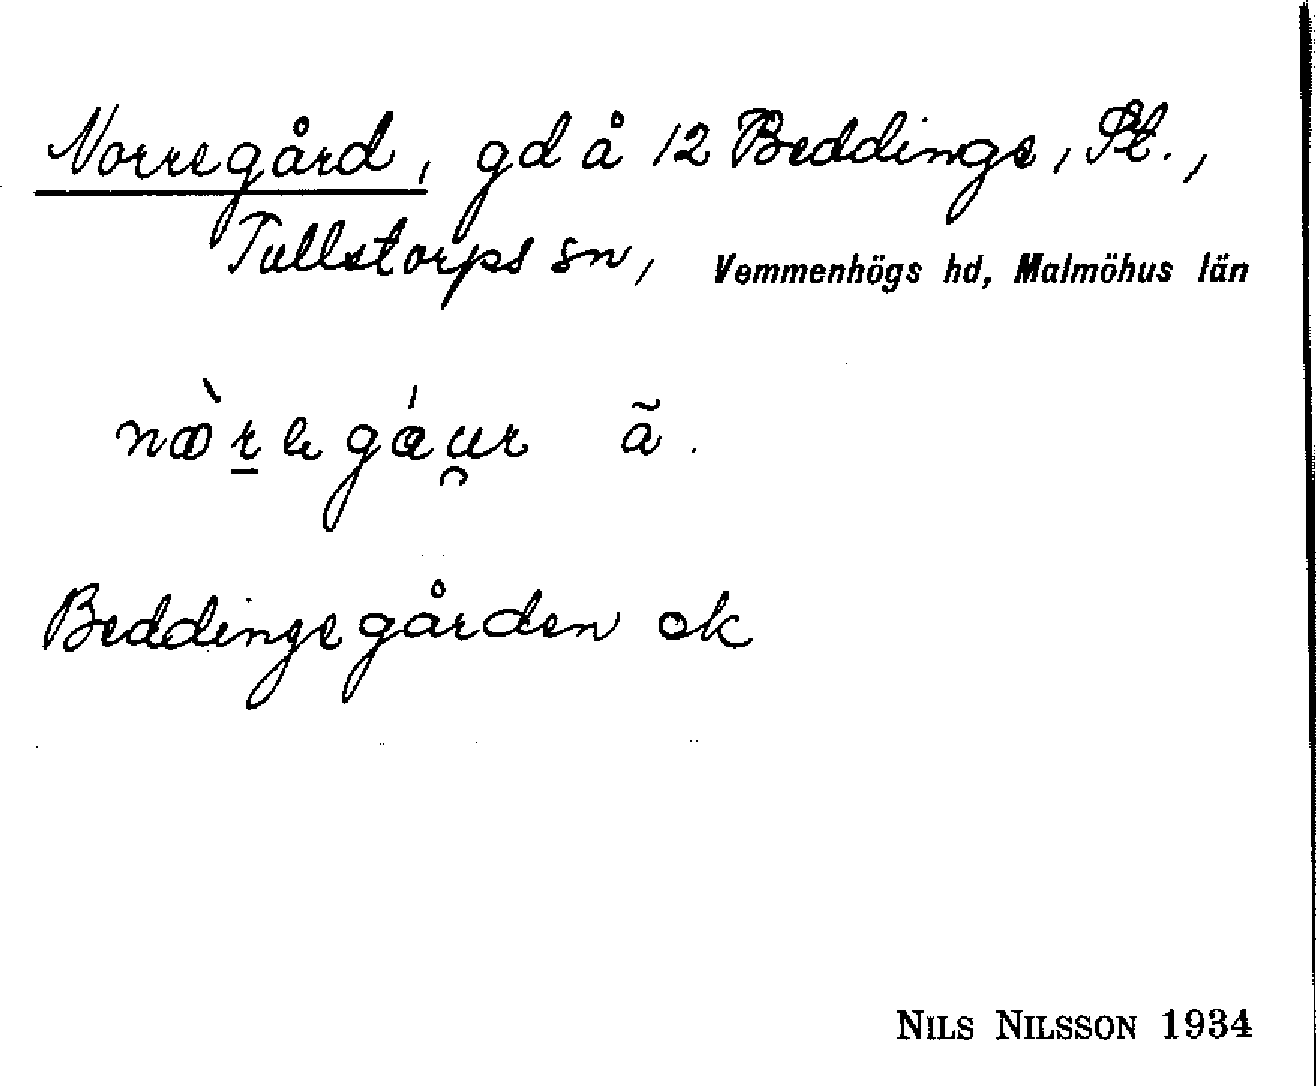 Norregård, gd å 12 Beddinge, St.,
Tullstorps sn, Vemmenhögs hd, Malmöhus län
ã.
Beddingegården ok
NILS NILSSON 1934